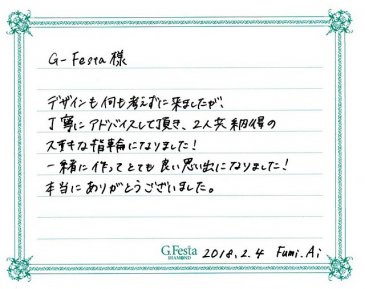 G-Festa様
デザインも何も考えずに来ましたが、
丁寧にアドバイスして頂き、2人共納得の
ステキな指輪になりました!
一緒に作ってとても良い思い出になりました!
本当にありがとうございました。
G.Festa
DIAMOND
2018.2.4 Fumi.Ai